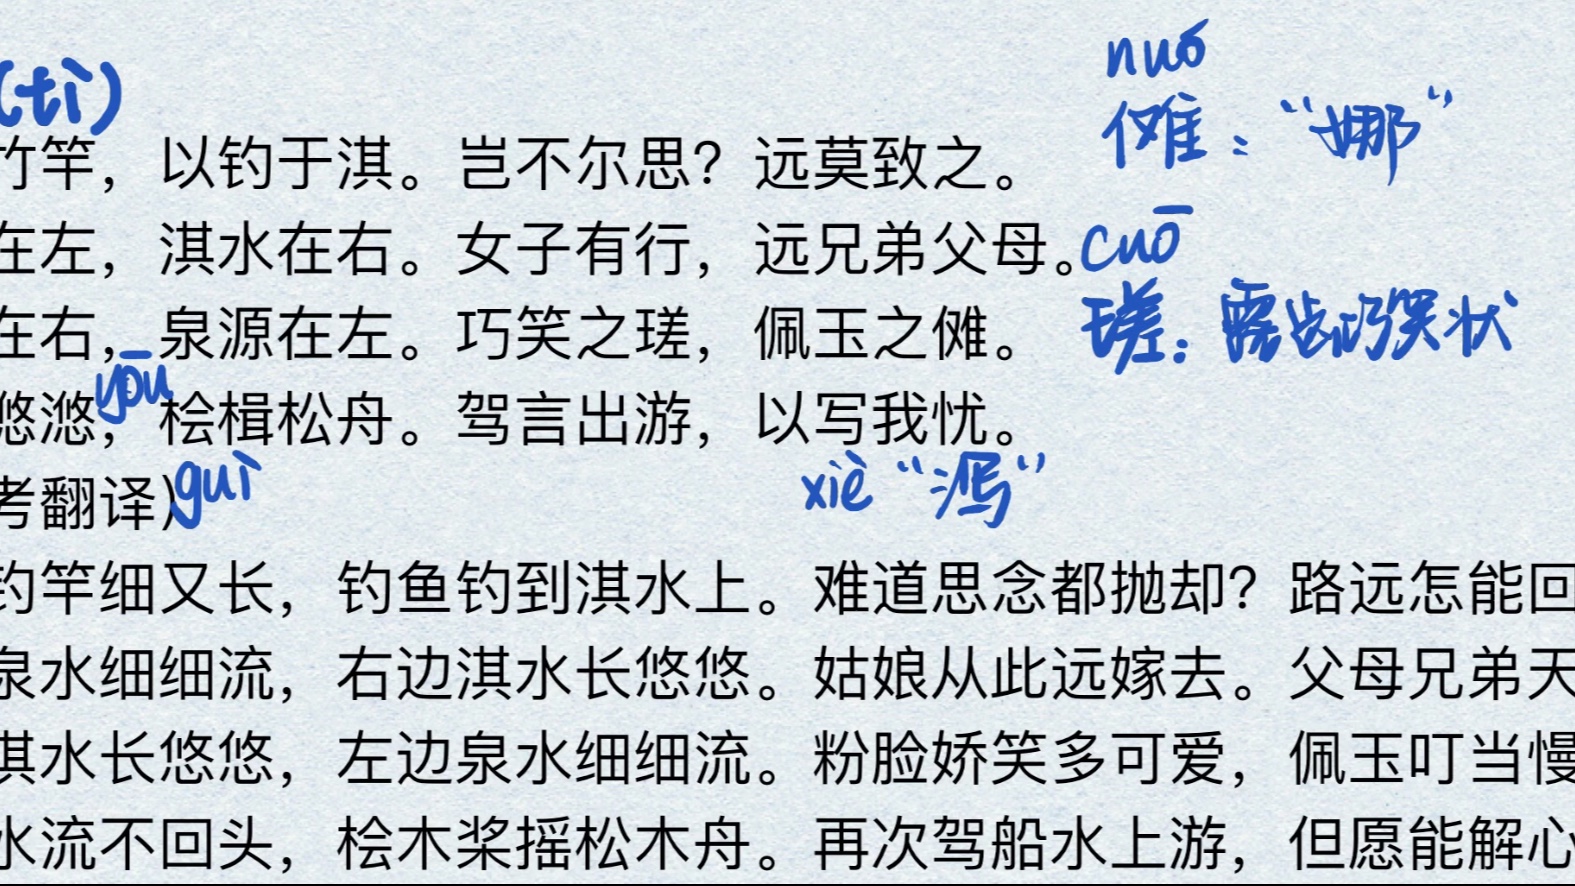 nuó
(tì)
傩："娜"
竹竿，以钓于淇。岂不尔思？远莫致之。
在左，淇水在右。女子有行，远兄弟父母。
cuō
在右，泉源在左。巧笑之瑳，佩玉之傩。
瑳：露齿巧笑状
yōu
悠滺，桧楫松舟。驾言出游，以写我忧。
guì
xiè"泻"
考翻译)
钓竿细又长，钓鱼钓到淇水上。难道思念都抛却？路远怎能回
泉水细细流，右边淇水长悠悠。姑娘从此远嫁去。父母兄弟天
淇水长悠悠，左边泉水细细流。粉脸娇笑多可爱，佩玉叮当慢
水流不回头，桧木桨摇松木舟。再次驾船水上游，但愿能解心